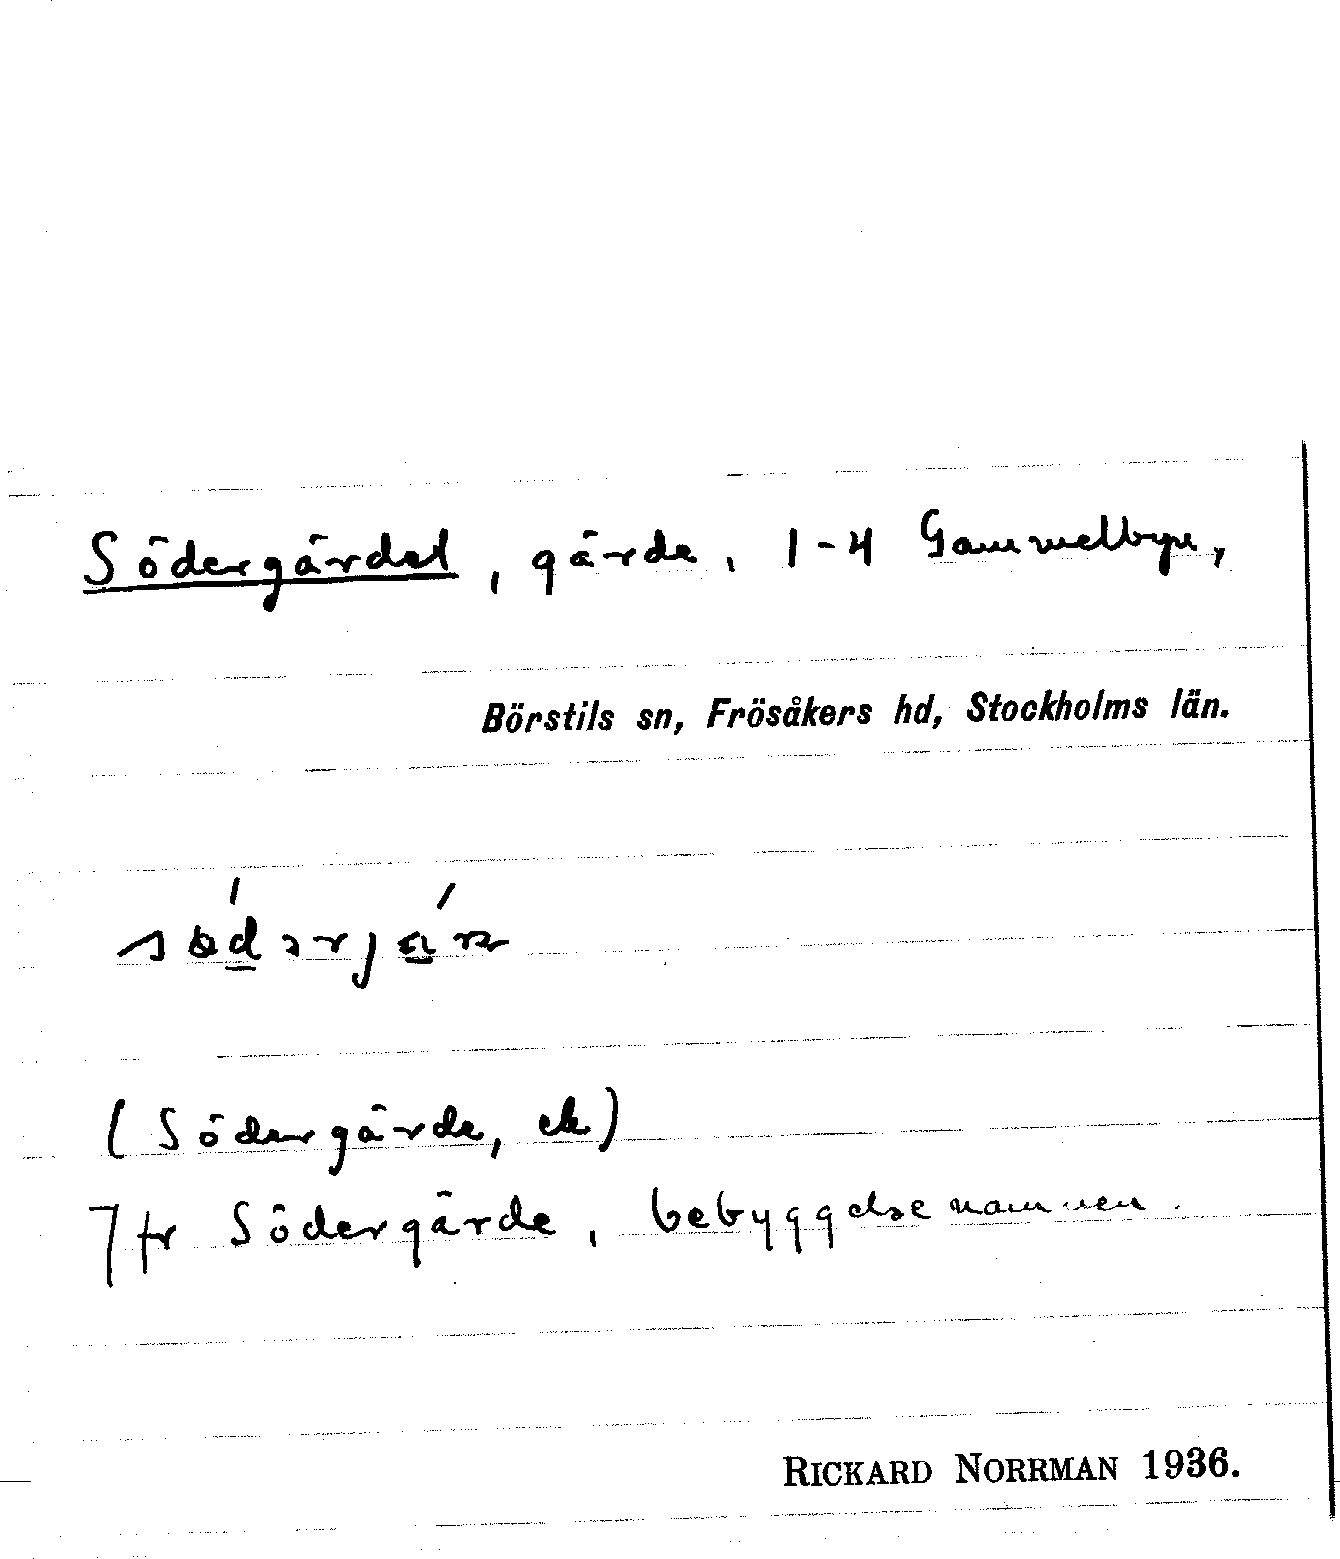 Södergärdet, gärde, 1-4 Gammelbyn,
Börstils sn, Frösåkers hd, Stockholms län.
(Södergärde, ek)
Jfr Södergärde, bebyggelsenamnen.
RICKARD NORRMAN 1936.